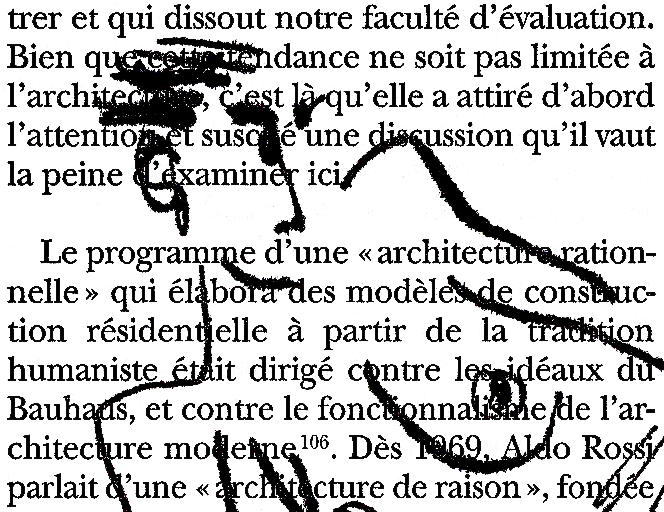 trer et qui dissout notre faculté d'évaluation.
Bien que cette tendance ne soit pas limitée à
l'architecture, c'est là qu'elle a attiré d'abord
l'attention et suscité une discussion qu'il vaut
la peine d'examiner ici.
Le programme d'une « architecture ration-
nelle » qui élabora des modèles de construc-
tion résidentielle à partir de la tradition
humaniste était dirigé contre les idéaux du
Bauhaus, et contre le fonctionnalisme de l'ar-
chitecture moderne¹⁰⁶. Dès 1969, Aldo Rossi
parlait d'une « architecture de raison », fondée